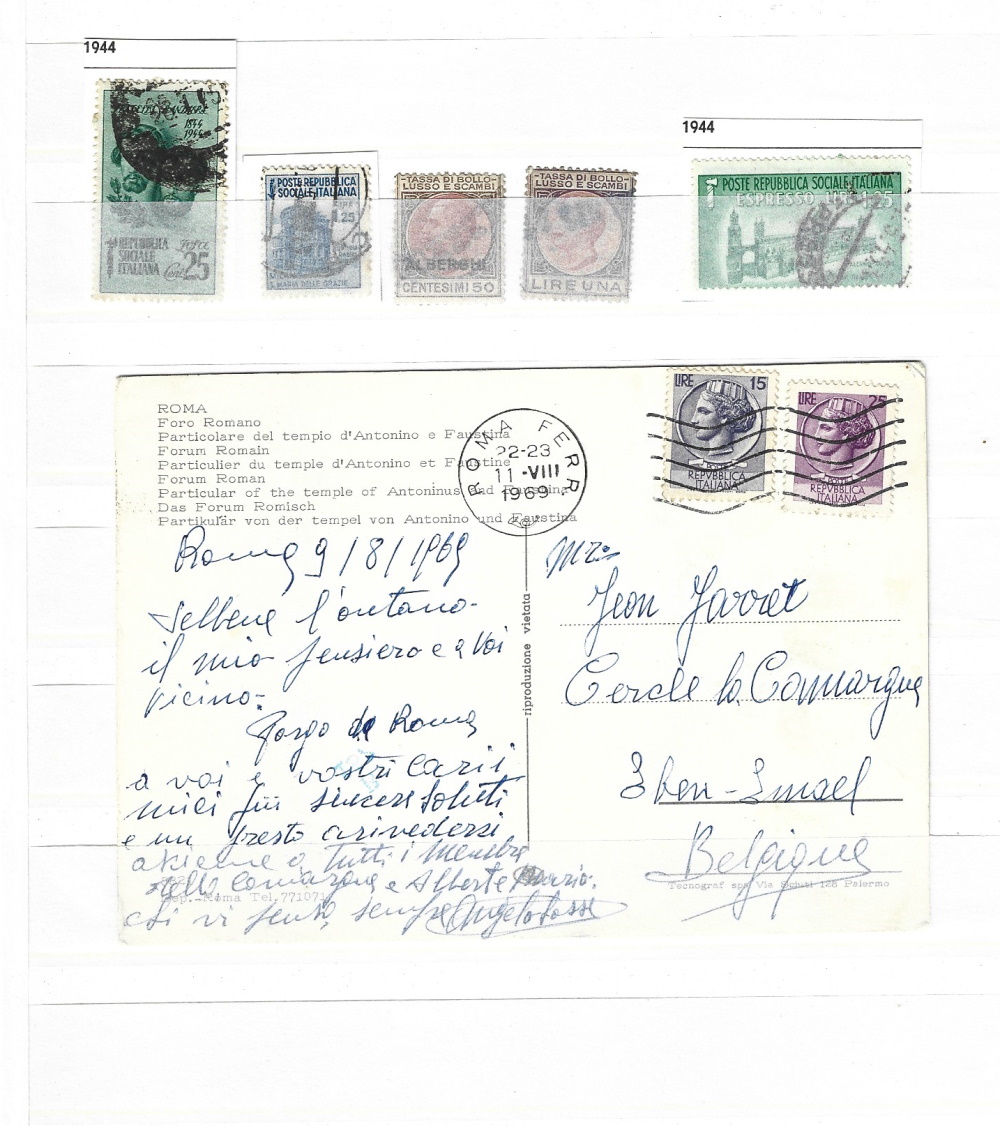 1944
1844
1944
REPUBBLICA
SOCIALE
ITALIANA
Cent 25
POSTE REPUBBLICA
SOCIALE ITALIANA
LIRE
1.25
S. MARIA DELLE GRAZIE
TASSA DI BOLLO
LUSSO E SCAMBI
ALBERGHI
CENTESIMI 50
TASSA DI BOLLO
LUSSO E SCAMBI
LIRE UNA
1944
POSTE REPUBBLICA SOCIALE ITALIANA
ESPRESSO LIRE 1,25
ROMA
Foro Romano
Particolare del tempio d'Antonino e Faustina
Forum Romain
Particulier du temple d'Antonino et Faustine
Forum Roman
Particular of the temple of Antoninus and Faustina
Das Forum Romisch
Partikular von der tempel von Antonino und Faustina
ROMA FERR
22-23
11-VIII
1969
LIRE 15
POSTE
REPVBBLICA
ITALIANA
LIRE 25
POSTE
REPVBBLICA
ITALIANA
Roma 9/8/1969
Sebbene l'ontano-
il mio pensiero e a voi
vicino-
Porgo da Roma
a voi e vostri carii
miei più sinceri saluti
e un presto arivedersi
assieme a tutti i membri
della Camargue e Alberte Mario.
chi vi pensa sempre Angelo
Dep. Roma Tel. 77107
riproduzione vietata
Mr
Jean Jarret
Cercle la Camargue
Eben-Emael
Belgique
Tecnograf spa Via Sciuti 128 Palermo